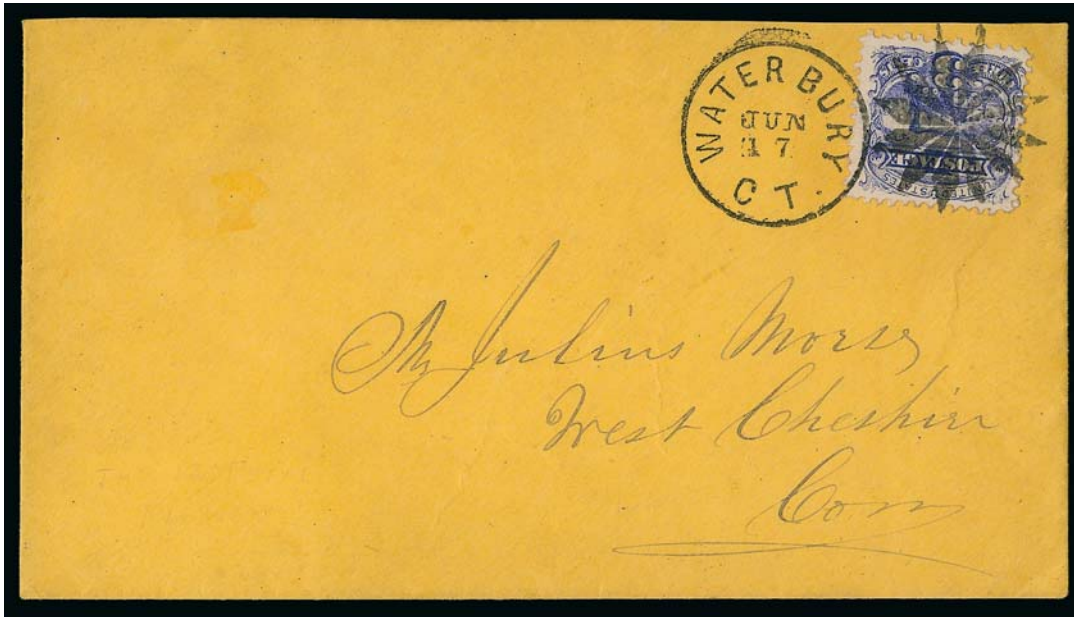 WATERBURY
JUN
17
CT.
UNITED STATES
POSTAGE
Mr Julius Morse
West Cheshire
Conn